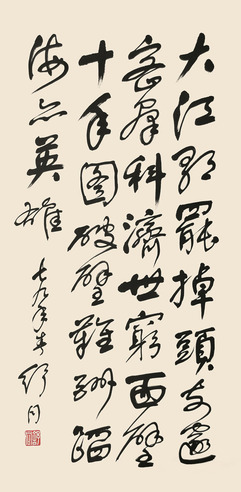 大江歌罷掉頭东邃
密羣科濟世窮面壁
十年图破壁難酬蹈
海亦英雄
七九年 舒同